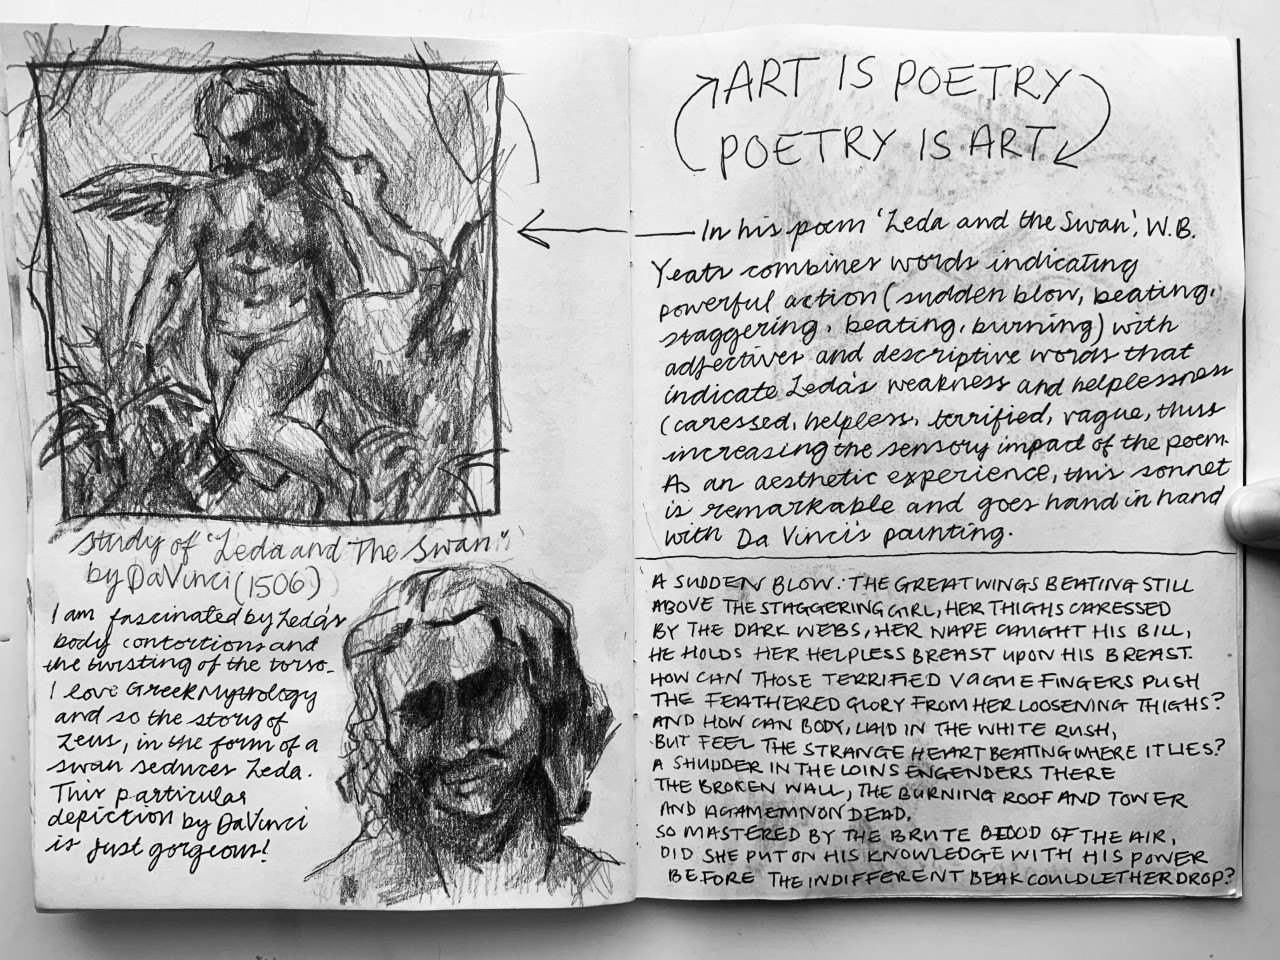 study of "Leda and The Swan"
by DaVinci (1506)
I am fascinated by Leda's
body contortions and
the twisting of the torso.
I love Greek Mythology
and so the story of
Zeus, in the form of a
swan seduces Leda.
This particular
depiction by DaVinci
is just gorgeous!
ART IS POETRY
POETRY IS ART
In his poem 'Leda and the Swan', W.B.
Yeats combines words indicating
powerful action (sudden blow, beating,
staggering, beating, burning) with
adjectives and descriptive words that
indicate Leda's weakness and helplessness
(caressed, helpless, terrified, vague, thus
increasing the sensory impact of the poem.
As an aesthetic experience, this sonnet
is remarkable and goes hand in hand
with Da Vinci's painting.
A SUDDEN BLOW: THE GREAT WINGS BEATING STILL
ABOVE THE STAGGERING GIRL, HER THIGHS CARESSED
BY THE DARK WEBS, HER NAPE CAUGHT HIS BILL,
HE HOLDS HER HELPLESS BREAST UPON HIS BREAST.
HOW CAN THOSE TERRIFIED VAGUE FINGERS PUSH
THE FEATHERED GLORY FROM HER LOOSENING THIGHS?
AND HOW CAN BODY, LAID IN THE WHITE RUSH,
BUT FEEL THE STRANGE HEART BEATING WHERE IT LIES?
A SHUDDER IN THE LOINS ENGENDERS THERE
THE BROKEN WALL, THE BURNING ROOF AND TOWER
AND AGAMEMNON DEAD.
SO MASTERED BY THE BRUTE BLOOD OF THE AIR,
DID SHE PUT ON HIS KNOWLEDGE WITH HIS POWER
BEFORE THE INDIFFERENT BEAK COULD LET HER DROP?